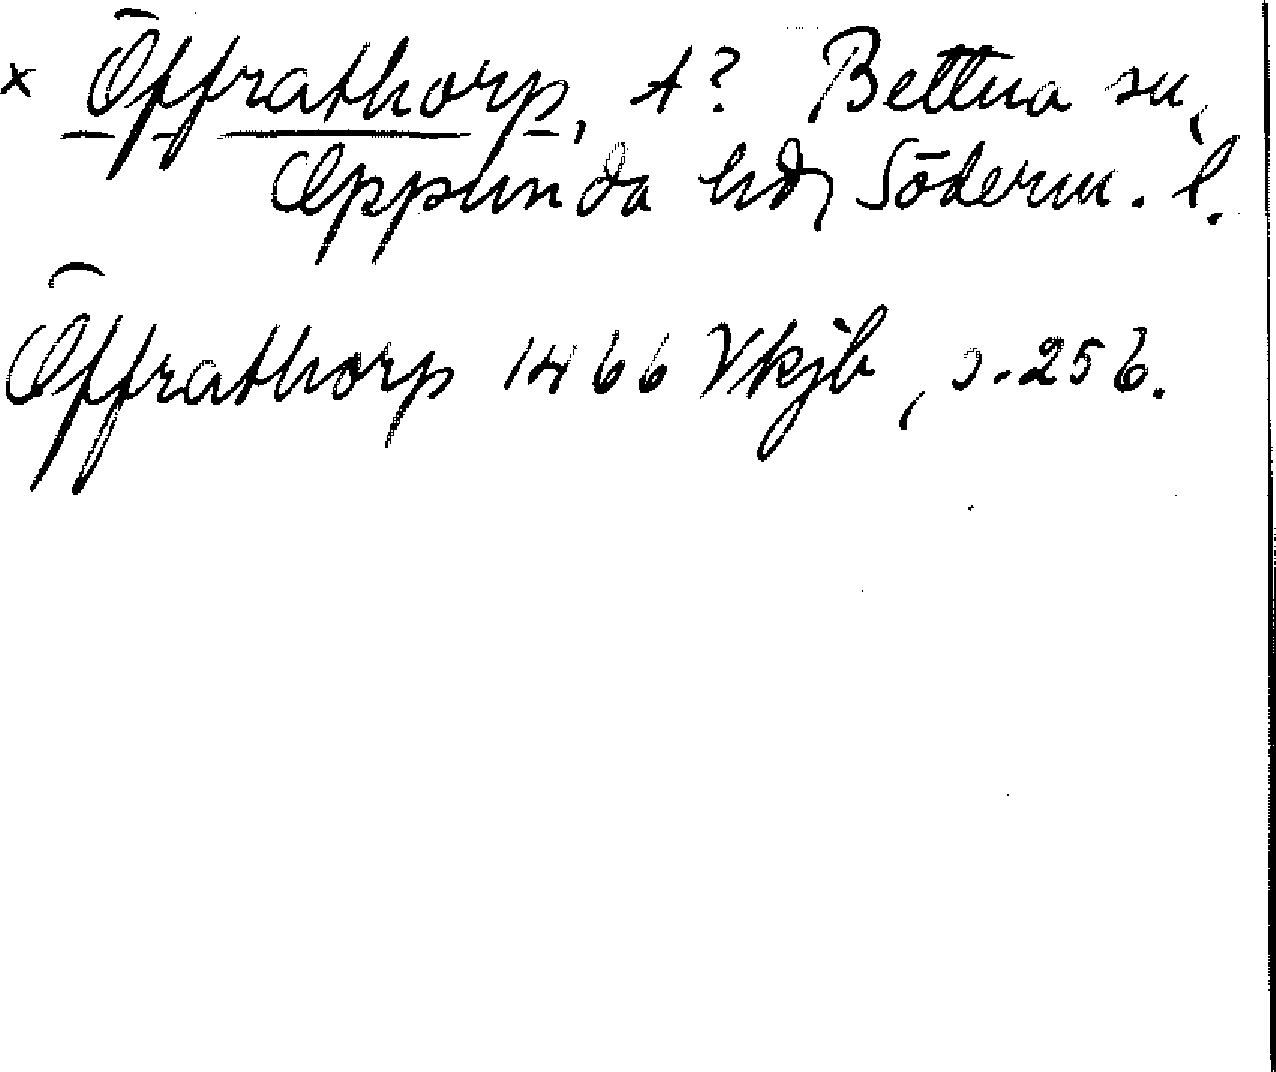 × Öffrathorp, t? Bettna sn,
Oppunda hd, Söderm. l.
Öffrathorp 1466 Vkjb, s. 256.